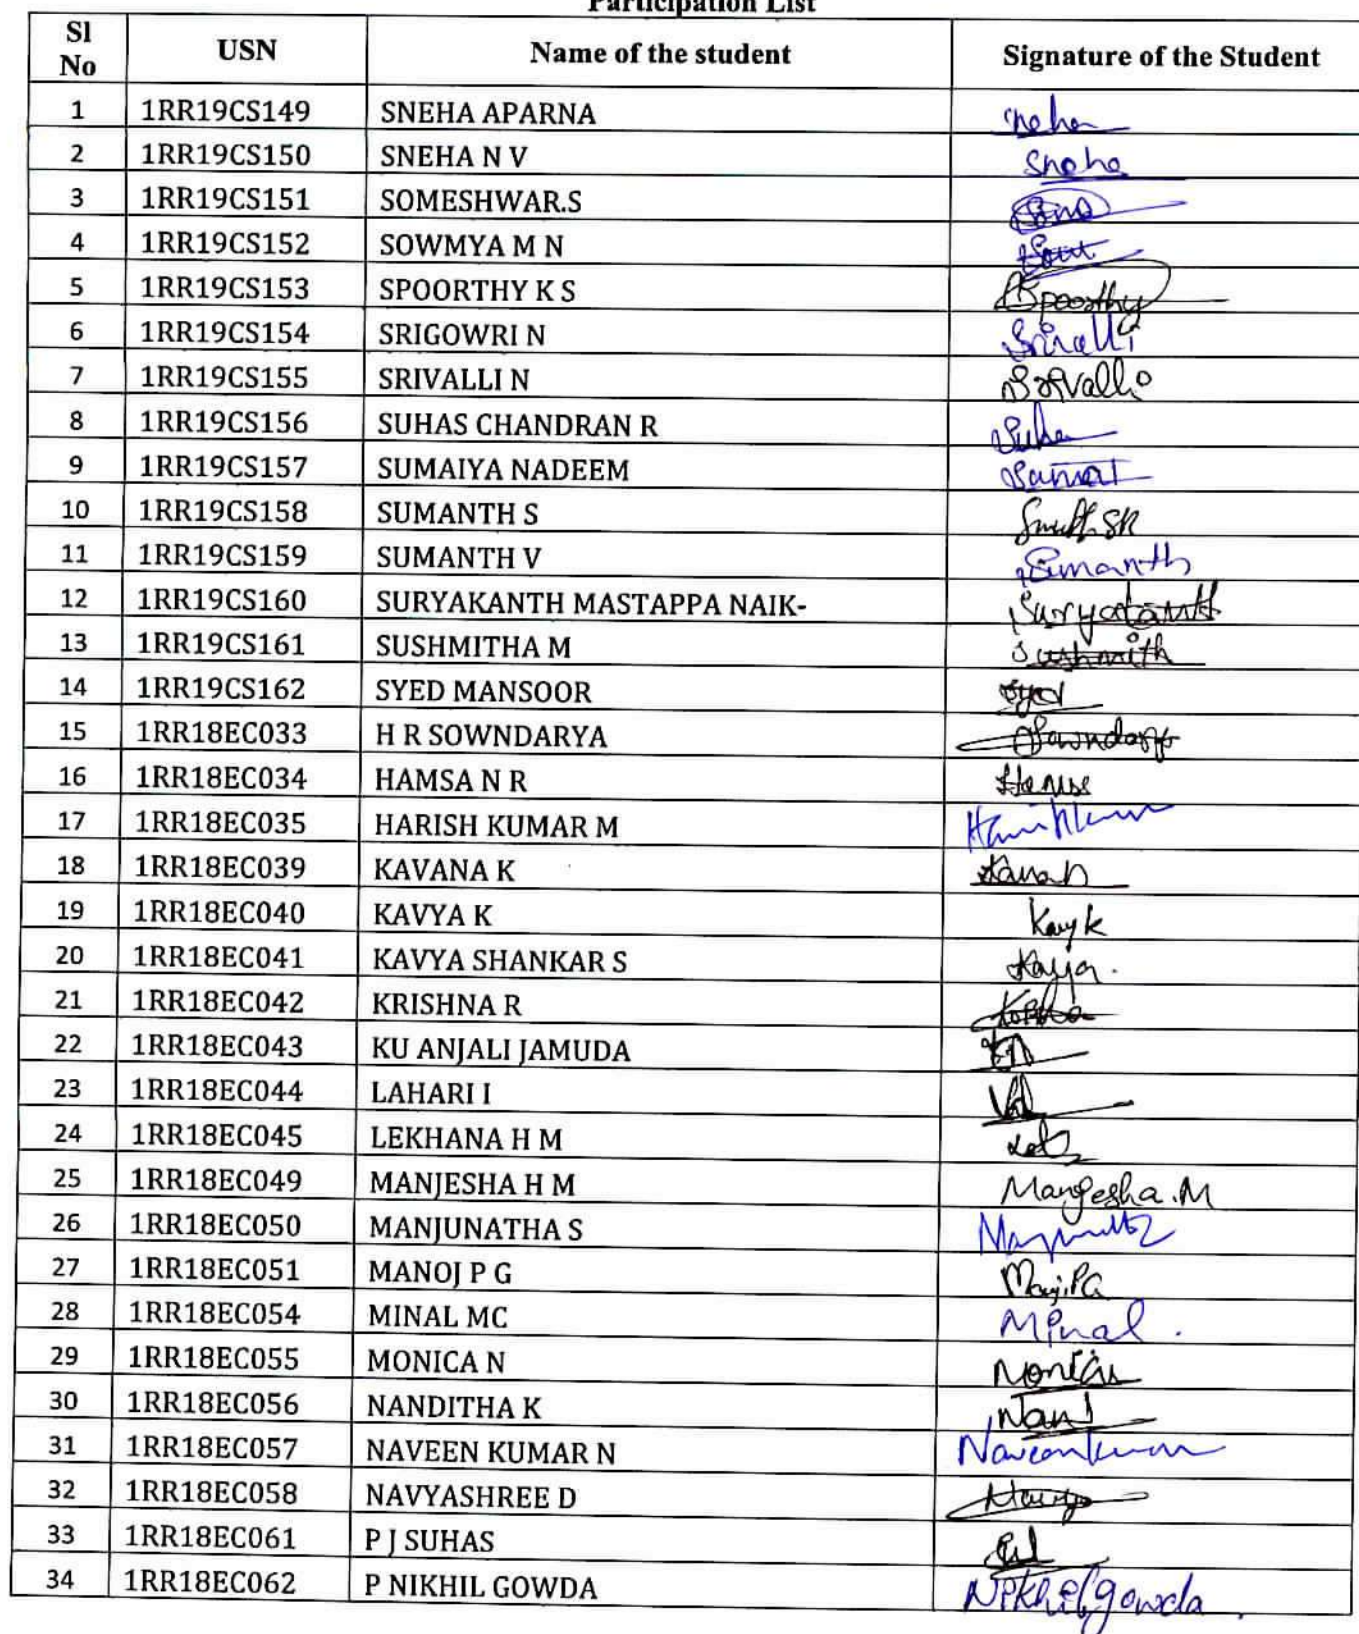 Participation List
Sl No USN Name of the student Signature of the Student
1 1RR19CS149 SNEHA APARNA
2 1RR19CS150 SNEHA N V Sneha
3 1RR19CS151 SOMESHWAR.S
4 1RR19CS152 SOWMYA M N
5 1RR19CS153 SPOORTHY K S Spoorthy
6 1RR19CS154 SRIGOWRI N
7 1RR19CS155 SRIVALLI N Srivalli
8 1RR19CS156 SUHAS CHANDRAN R
9 1RR19CS157 SUMAIYA NADEEM
10 1RR19CS158 SUMANTH S
11 1RR19CS159 SUMANTH V Sumanth
12 1RR19CS160 SURYAKANTH MASTAPPA NAIK- Suryakanth
13 1RR19CS161 SUSHMITHA M Sushmith
14 1RR19CS162 SYED MANSOOR Syed
15 1RR18EC033 H R SOWNDARYA
16 1RR18EC034 HAMSA N R
17 1RR18EC035 HARISH KUMAR M
18 1RR18EC039 KAVANA K
19 1RR18EC040 KAVYA K
20 1RR18EC041 KAVYA SHANKAR S
21 1RR18EC042 KRISHNA R
22 1RR18EC043 KU ANJALI JAMUDA
23 1RR18EC044 LAHARI I
24 1RR18EC045 LEKHANA H M
25 1RR18EC049 MANJESHA H M Manjesha.M
26 1RR18EC050 MANJUNATHA S
27 1RR18EC051 MANOJ P G
28 1RR18EC054 MINAL MC Minal.
29 1RR18EC055 MONICA N
30 1RR18EC056 NANDITHA K
31 1RR18EC057 NAVEEN KUMAR N Naveenkumar
32 1RR18EC058 NAVYASHREE D
33 1RR18EC061 P J SUHAS
34 1RR18EC062 P NIKHIL GOWDA Nikhil gowda.